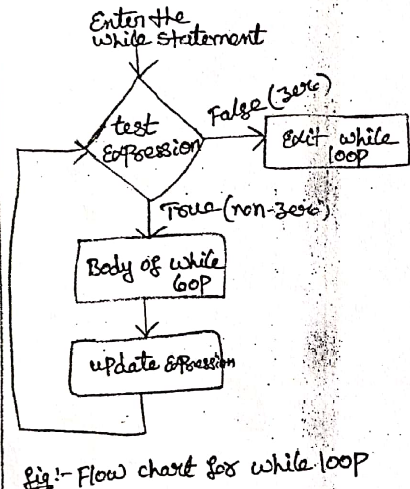 Enter the
while statement
test
Expression
False (zero)
Exit while
loop
True (non-zero)
Body of while
loop
update Expression
fig:- Flow chart for while loop